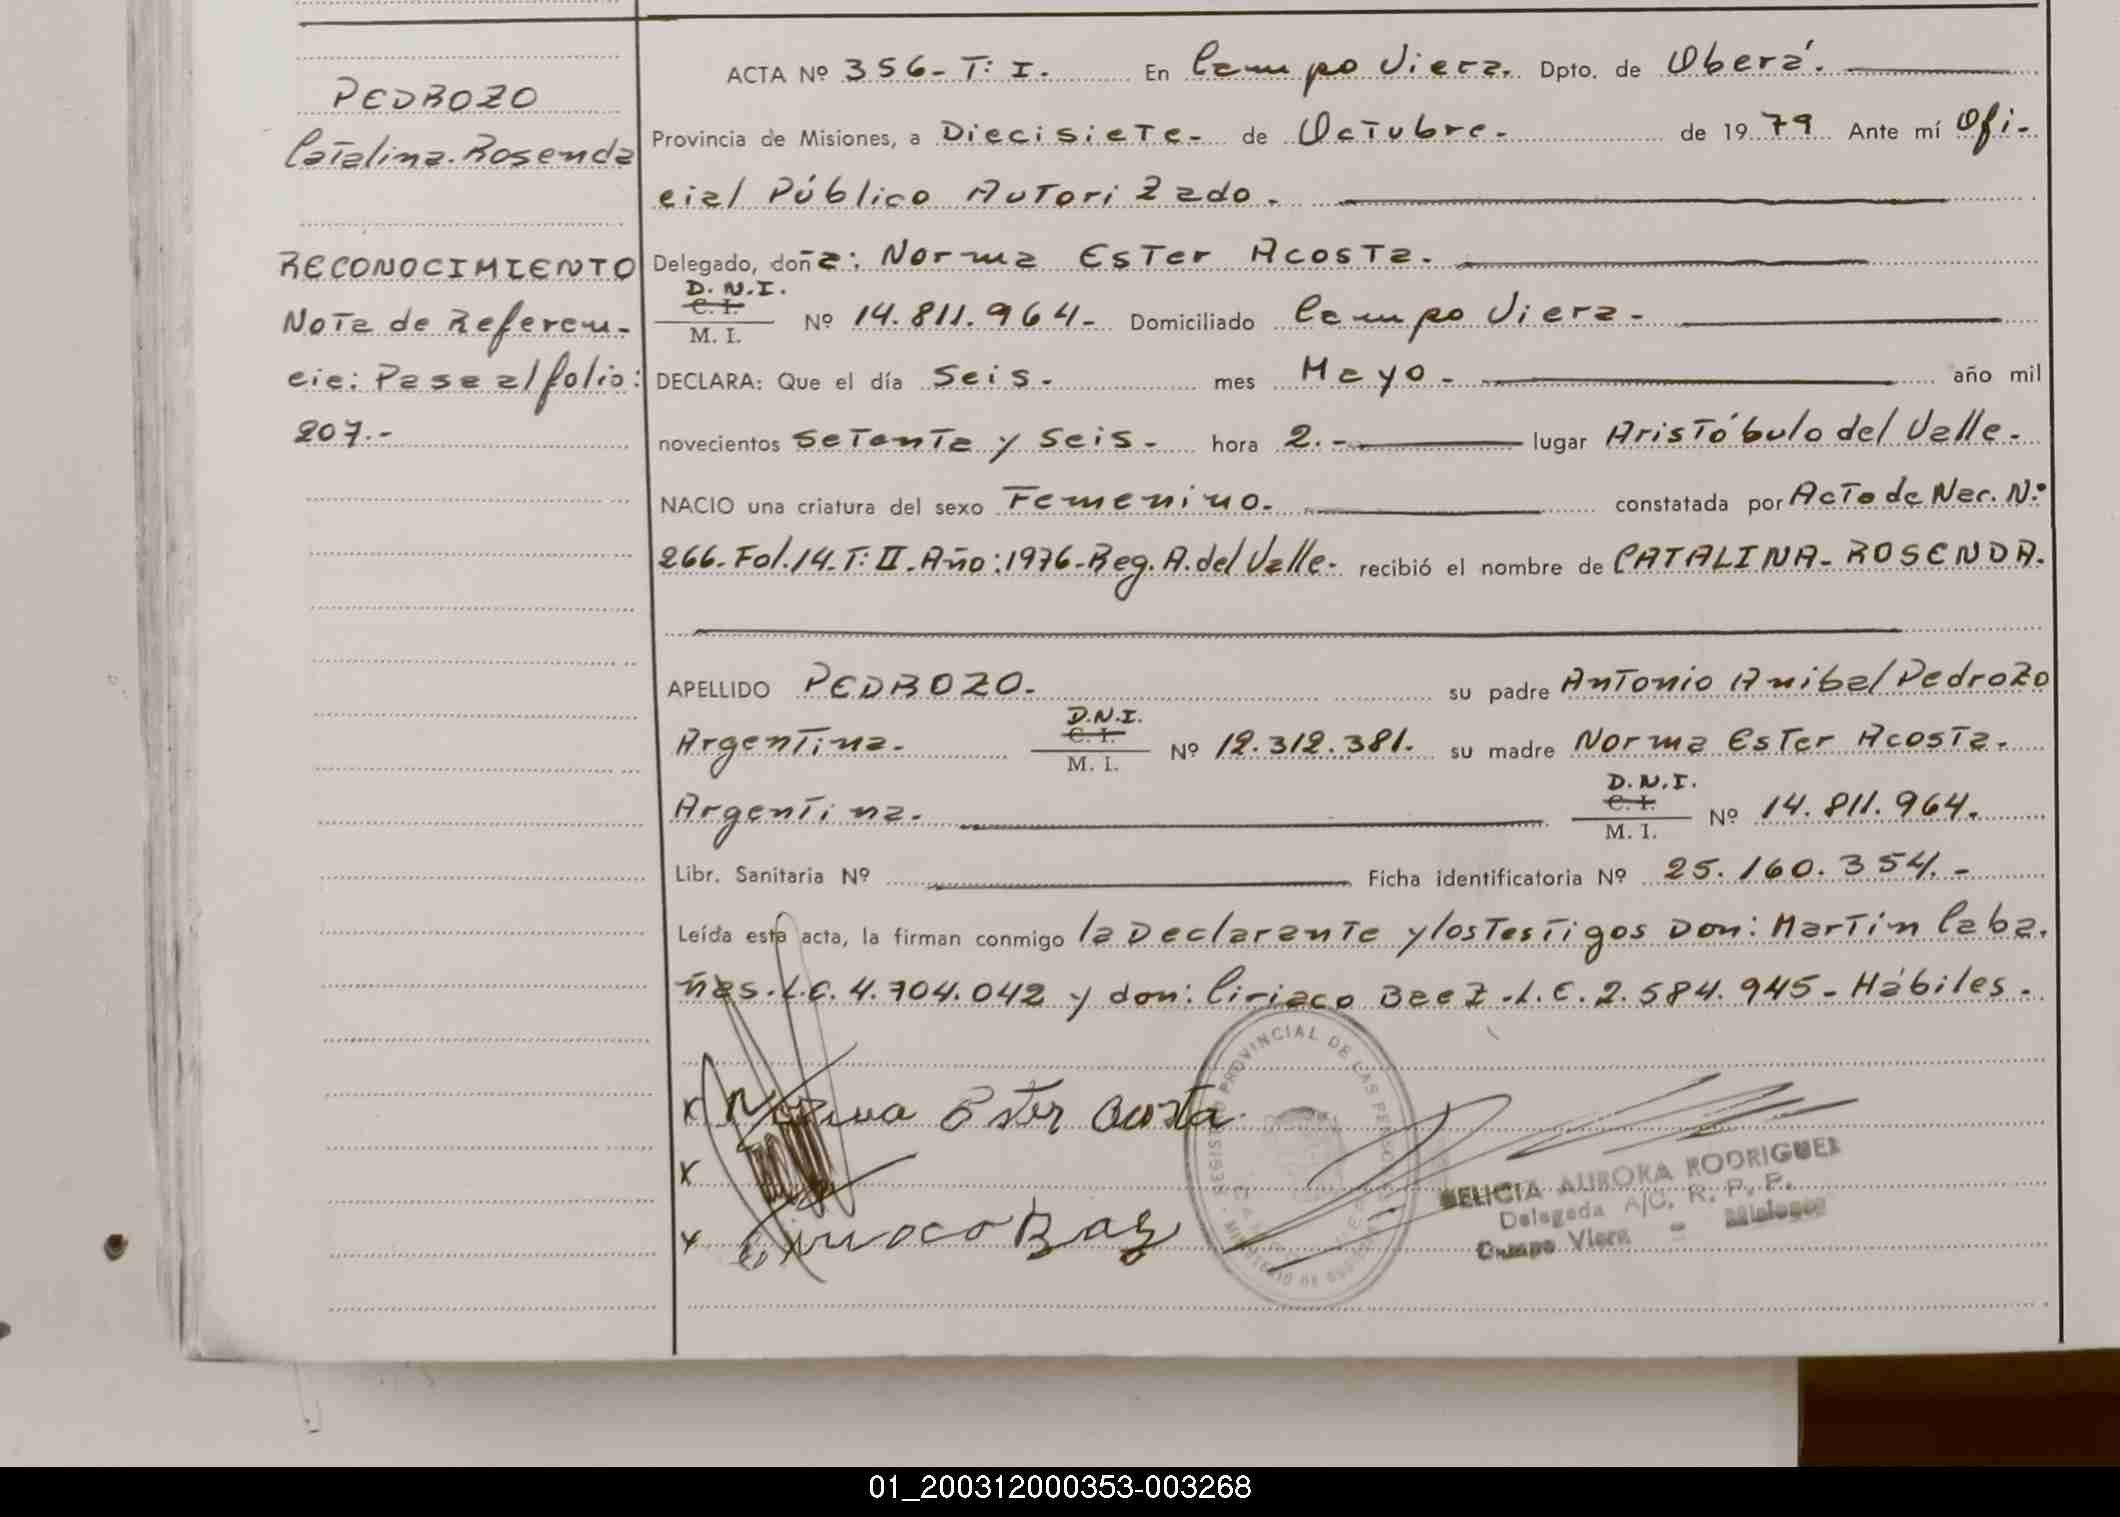 PEDROZO
Catalina-Rosenda
RECONOCIMIENTO
Nota de Referen-
cia: Pase al folio:
207.-
ACTA Nº 356- T: I. En Campo Viera. Dpto. de Oberá.
Provincia de Misiones, a Diecisiete- de Octubre- de 1979 Ante mí Ofi-
cial Público Autorizado.
Delegado, doña: Norma Ester Acosta.
D.N.I.
C. I.
M. I. Nº 14.811.964- Domiciliado Campo Viera-
DECLARA: Que el día Seis- mes Mayo- año mil
novecientos Setenta y Seis- hora 2.- lugar Aristóbulo del Valle-
NACIO una criatura del sexo Femenino. constatada por Acta de Nac. N:º
266-Fol.14-T: II-Año: 1976-Reg. A. del Valle- recibió el nombre de CATALINA-ROSENDA.
APELLIDO PEDROZO. su padre Antonio Anibal Pedrozo
D.N.I.
C. I.
Argentina. M. I. Nº 12.312.381. su madre Norma Ester Acosta.
D.N.I.
C. I.
Argentina. M. I. Nº 14.811.964.
Libr. Sanitaria Nº Ficha identificatoria Nº 25.160.354.-
Leída esta acta, la firman conmigo la Declarante y los Testigos Don: Martin Caba-
ñas-L.E. 4.704.042 y don: Ciriaco Baez-L.E. 2.584.945- Hábiles.
X Norma Ester Acosta.
X
X Ciriaco Baez
REGISTRO PROVINCIAL DE LAS PERSONAS
MINISTERIO DE
FELICIA AURORA RODRIGUEZ
Delegada A/C. R. P. P.
Campo Viera - Misiones
01_200312000353-003268